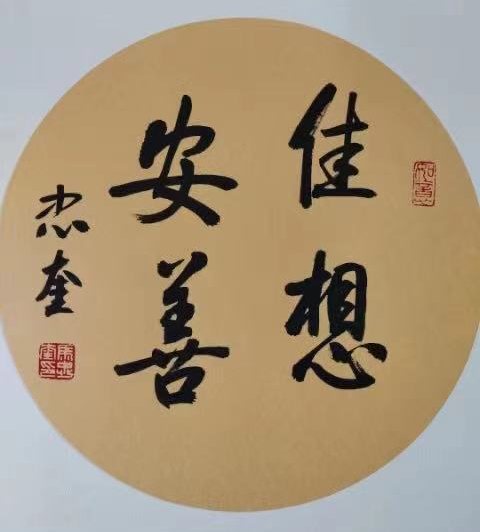 佳想
安善
忠奎